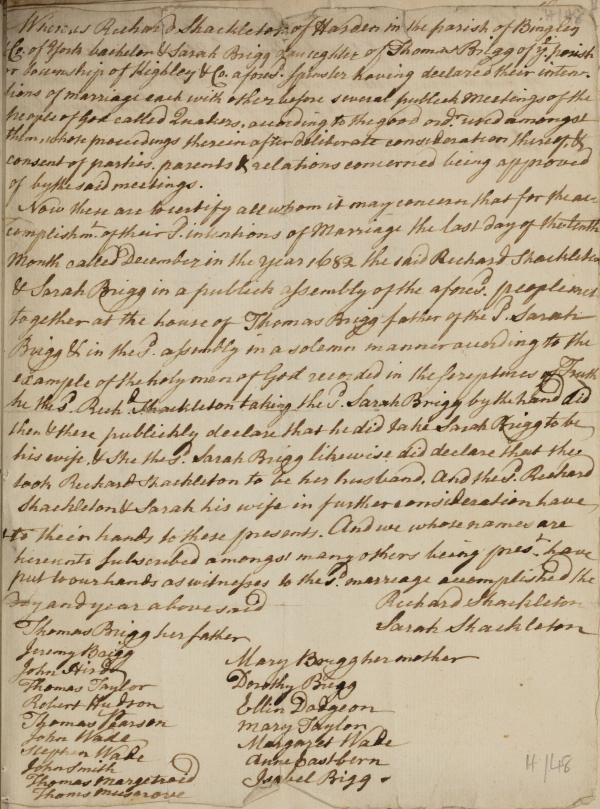 Whereas Richard Shackleton of Harden in the parish of Bingley
& Co. of York bachelor & Sarah Brigg Daughter of Thomas Brigg of ye. parish
or township of Highley & Co. afores. Spinster having declared their inten-
tions of marriage each with other before several publick Meetings of the
people of God called Quakers, according to the good ordr. used amongst
them, whose proceedings therein after deliberate consideration thereof, &
consent of parties, parents & relations concerned being approved
of by the said meetings.
Now these are to certify all whom it may concern that for the ac-
complishmt. of their Sd. intentions of Marriage the last day of the tenth
Month called December in the year 1682 the said Richard Shackleton
& Sarah Brigg in a publick assembly of the aforesd. people met
together at the house of Thomas Brigg father of the Sd. Sarah
Brigg & in the Sd. assembly in a solemn manner according to the
example of the holy men of God recorded in the Scriptures of Truth
he the Sd. Richd. Shackleton taking the Sd. Sarah Brigg by the hand did
then & there publickly declare that he did take Sarah Brigg to be
his wife, & She the Sd. Sarah Brigg likewise did declare that she
took Richard Shackleton to be her husband. And the Sd. Richard
Shackleton & Sarah his wife in further consideration have
to their hands to these presents. And we whose names are
hereunto Subscribed amongst many others being prest. have
put to our hands as witnesses to the Sd. marriage accomplished the
Day and year above said
Richard Shackleton
Sarah Shackleton
Thomas Brigg her father
Jeremy Brigg
John Hird
Thomas Taylor
Robert Hudson
Thomas Pearson
John Wade
Stephen Wade
John Smith
Thomas Margetroid
Thoms Musgrove
Mary Brigg her mother
Dorothy Brigg
Ellin Dodgeon
Mary Taylor
Margaret Wade
Anne Eastbern
Isabel Bigg
H/48